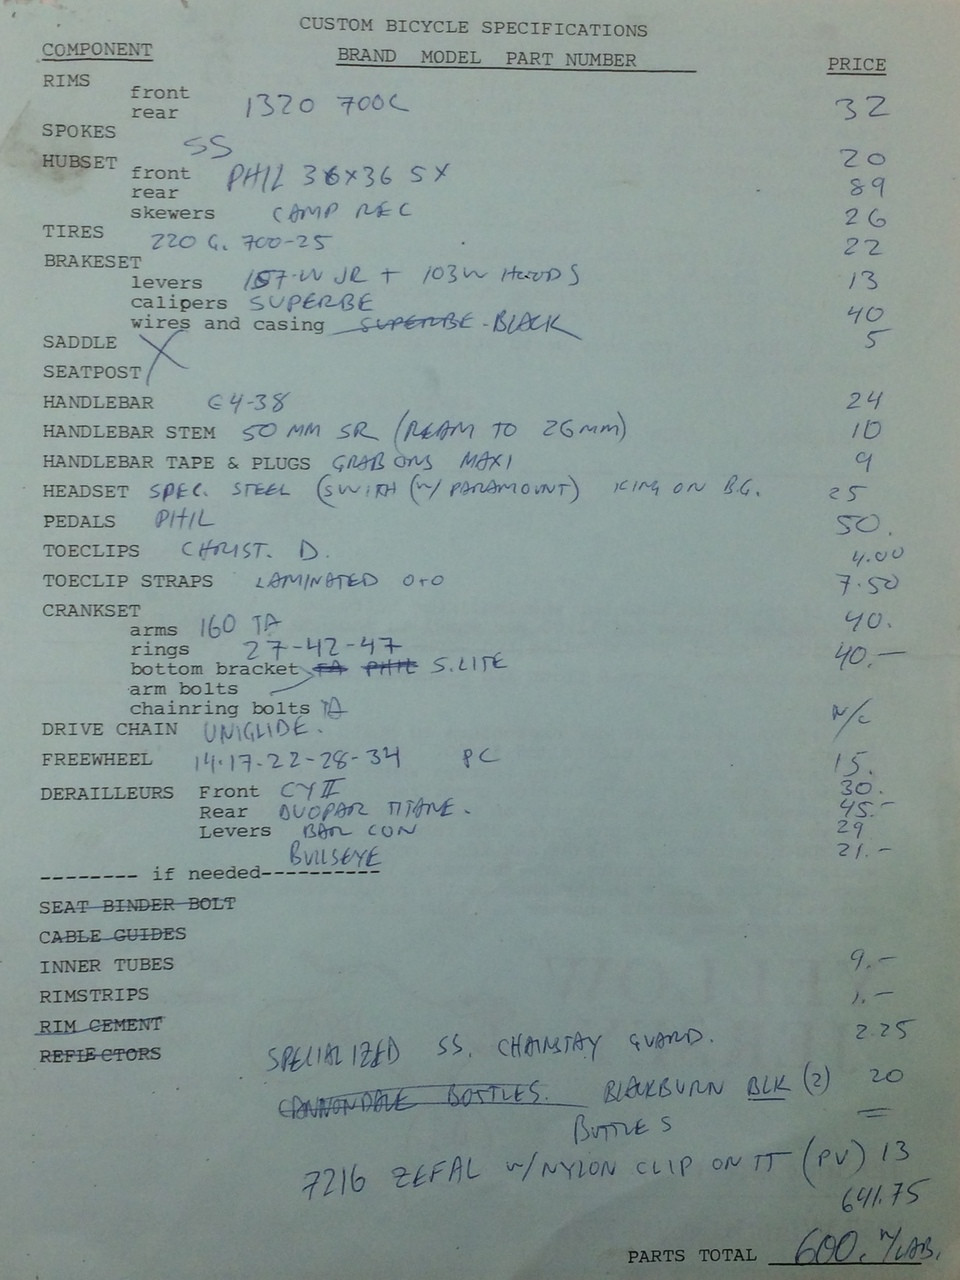 CUSTOM BICYCLE SPECIFICATIONS
COMPONENT BRAND MODEL PART NUMBER PRICE
RIMS
front
rear 1320 700C 32
SPOKES SS 20
HUBSET
front PHIL 36x36 5X 89
rear
skewers CAMP REC 26
TIRES 220 G. 700-25 22
BRAKESET
levers 157-W JR + 103W HOODS 13
calipers SUPERBE 40
wires and casing SUPERBE - BLACK 5
SADDLE
SEATPOST
HANDLEBAR G4-38 24
HANDLEBAR STEM 50 MM SR (REAM TO 26mm) 10
HANDLEBAR TAPE & PLUGS GRAB ONS MAXI 9
HEADSET SPEC. STEEL (SWITH (W/ PARAMOUNT) KING ON B.G. 25
PEDALS PHIL 50.
TOECLIPS CHRIST. D. 4.00
TOECLIP STRAPS LAMINATED 7.50
CRANKSET
arms 160 TA 40.
rings 27-42-47 40.-
bottom bracket TA PHIL S.LITE
arm bolts
chainring bolts TA
DRIVE CHAIN UNIGLIDE. N/C
FREEWHEEL 14-17-22-28-34 PC 15.
DERAILLEURS Front CY II 30.
Rear DUOPAR TITANE. 45.-
Levers BAR CON 29
BULLSEYE 21.-
-------- if needed----------
SEAT BINDER BOLT
CABLE GUIDES
INNER TUBES 9.-
RIMSTRIPS 1.-
RIM CEMENT
REFLECTORS SPECIALIZED SS. CHAINSTAY GUARD. 2.25
CANNONDALE BOTTLES. BLACKBURN BLK (2) 20
BOTTLES =
7216 ZEFAL W/NYLON CLIP ON TT (PV) 13
641.75
PARTS TOTAL 600. W/LAB.